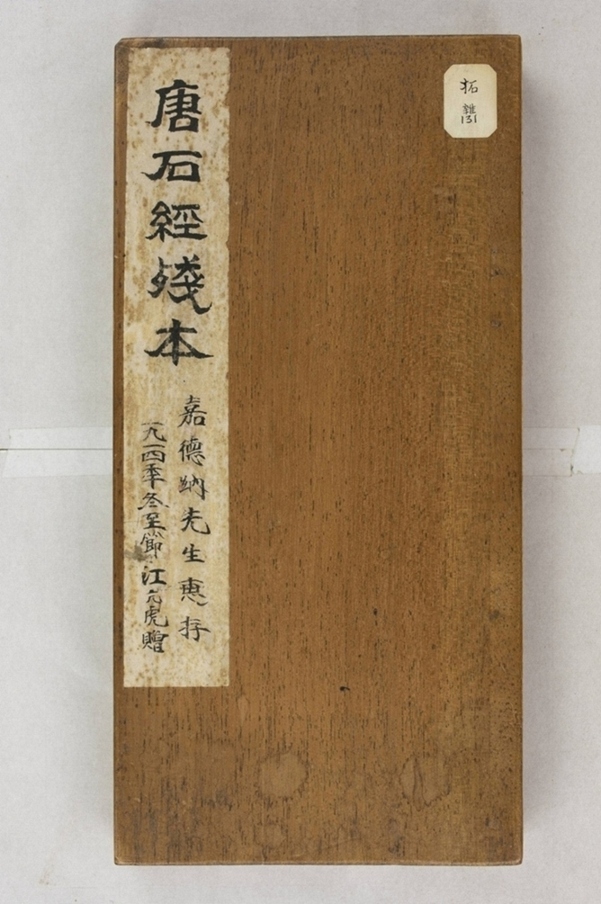 唐石經殘本
嘉德納先生惠存
一九一四季冬至節江亢虎贈
拓
雜
131